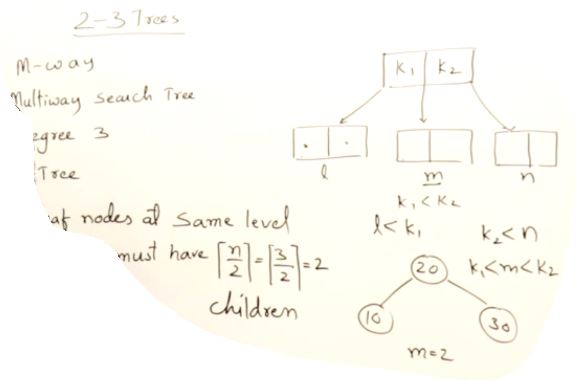 2-3 Trees
M-way
Multiway Search Tree
egree 3
Tree
af nodes at same level
must have ⌈n/2⌉=⌈3/2⌉=2
children
k₁ k₂
l m n
k₁<k₂
l<k₁ k₂<n
k₁<m<k₂
20
10 30
m=2